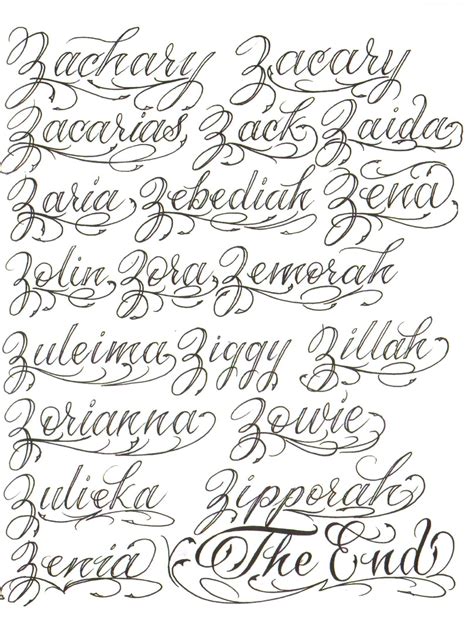 Zachary Zacary
Zacarias, Zack Zaida
Zaria, Zebediah Zena
Zolin, Zora, Zemorah
Zuleima Ziggy Zillah
Zorianna Zowie
Zulieka Zipporah
Zenia The End